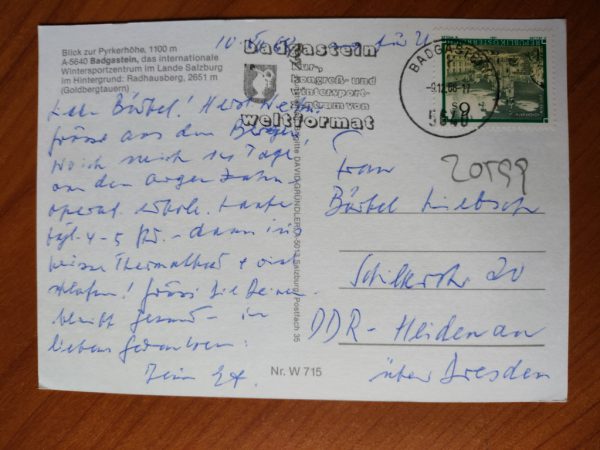 Blick zur Pyrkerhöhe, 1100 m
A-5640 Badgastein, das internationale
Wintersportzentrum im Lande Salzburg
im Hintergrund: Radhausberg, 2651 m
(Goldbergtauern)
Badgastein
Kur-,
kongreß- und
wintersport-
zentrum von
weltformat
BADGASTEIN
5640
REPUBLIK ÖSTERREICH
S 6
Liebe Bärbel! Herzl.
Grüsse aus den Bergen!
Wo ich mich 14 Tage
von den argen Zahn-
operat. erhole. Laufe
tägl. 4-5 Std. - dann ins
heisse Thermalbad + viel
schlafen! Grüss die Deinen
bleibt gesund - in
lieben Gedanken:
Brigitte DAVID/GRUNDLER/A-5013 Salzburg/Postfach 35
Nr. W 715
20599
Frau
Bärbel
20
DDR - Heidenau
über Dresden